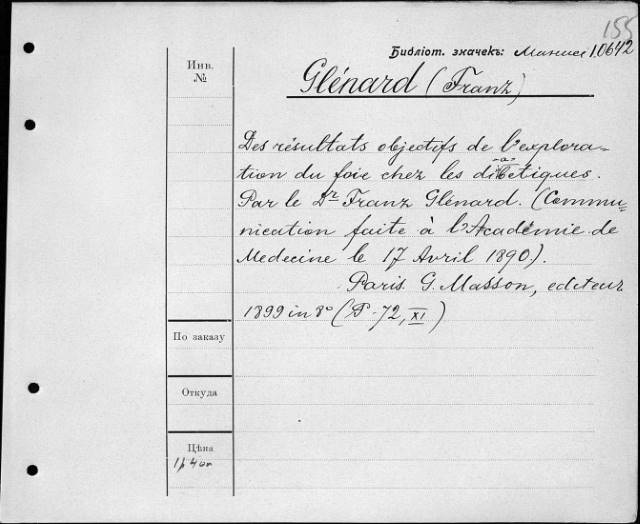 155
Библіот. значекъ: 1.0642
Инв.
№
Glénard (Franz)
Des résultats objectifs de l'explora-
tion du foie chez les diabétiques.
Par le Dr Franz Glénard. (Commu-
nication faite à l'Académie de
Medecine le 17 Avril 1890).
Paris G. Masson, editeur
1899 in 8° (P. 72, XI)
По заказу
Откуда
Цѣна